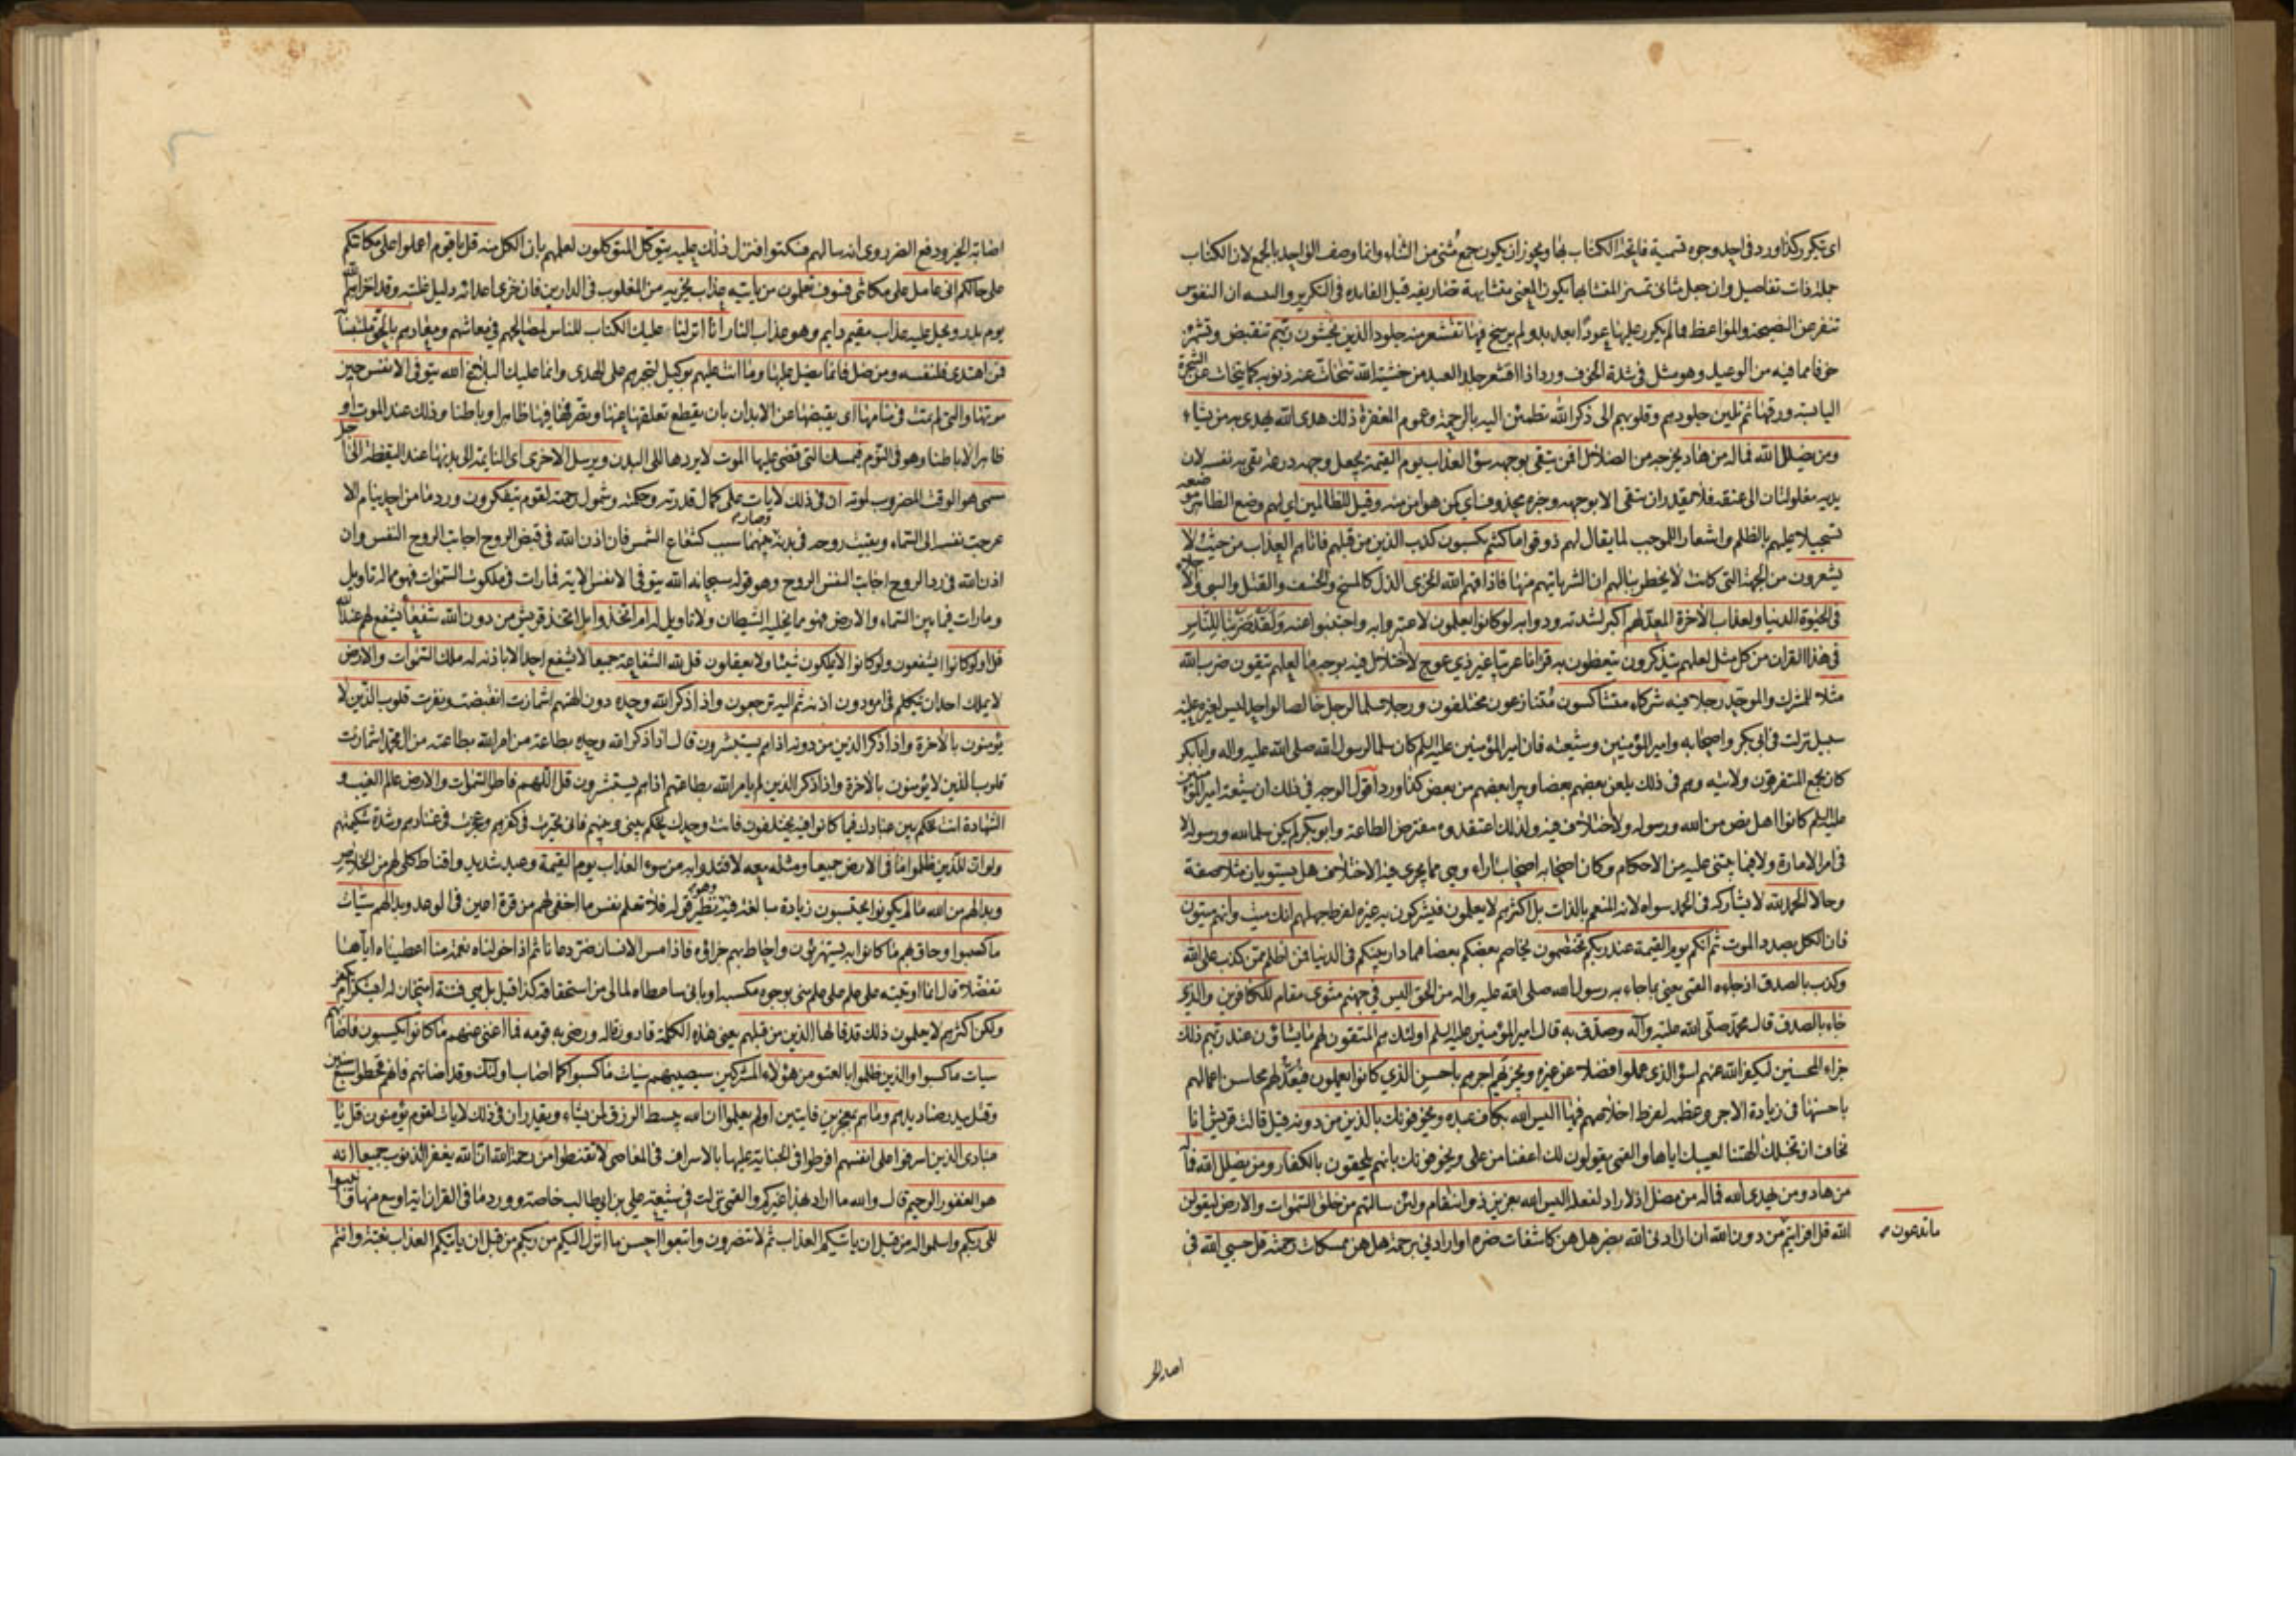 اى تتكرر كذا ورد فى احد وجوه تسمية فاتحة الكتاب بها ويجوز ان يكون جمع مثنى من الثناء وانما وصف الواحد بالجمع لان الكتاب
جملة ذات تفاصيل وان جعل مثانى تمييز المتشابها يكون المعنى متشابهة تصاريفه قيل الفايده فى التكرير والتثنيه ان النفوس
تنفر عن النصيحة والمواعظ فما لم يكرر عليها عودا بعد بدو لم يرسخ فيها تقشعر منه جلود الذين يخشون ربهم تنقبض وتشمئز
خوفا مما فيه من الوعيد وهو مثل فى شدة الخوف ورد اذا اقشعر جلد العبد من خشية الله تتحات عنه ذنوبه كما يتحات عن الشجرة
اليابسة ورقها ثم تلين جلودهم وقلوبهم الى ذكر الله تطمئن اليه بالرحمة وعموم المغفرة ذلك هدى الله يهدى به من يشاء
ومن يضلل الله فما له من هاد يخرجه من الضلال افمن يتقى بوجهه سوء العذاب يوم القيمة يجعل وجهه درقة يقى به نفسه لان
يديه مغلولتان الى عنقه فلا يقدر ان يتقى الا بوجهه وخبره محذوف اى كمن هو امن منه وقيل للظالمين اى لهم وضع الظاهر موضعه
تسجيلا عليهم بالظلم واشعارا للموجب لما يقال لهم ذوقوا ما كنتم تكسبون كذب الذين من قبلهم فاتاهم العذاب من حيث لا
يشعرون من الجهة التى كانت لا يخطر ببالهم ان الشر ياتيهم منها فاذاقهم الله الخزى الذل كالمسخ والخسف والقتل والسبى والاجلاء
فى الحيوة الدنيا ولعذاب الاخرة المعد لهم اكبر لشدته ودوامه لو كانوا يعلمون لاعتبروا به واجتنبوا عنه ولقد ضربنا للناس
فى هذا القران من كل مثل لعلهم يتذكرون يتعظون به قرانا عربيا غير ذى عوج لا اختلال فيه بوجه ما لعلهم يتقون ضرب الله
مثلا للمشرك والموحد رجلا فيه شركاء متشاكسون متنازعون مختلفون ورجلا سلما لرجل خالصا لواحد ليس لغيره عليه
سبيل نزلت فى ابى بكر واصحابه وامير المؤمنين وشيعته فان امير المؤمنين عليه السلم كان سلما لرسول الله صلى الله عليه واله وابا بكر
كان يجمع المتفرقون ولايته وهم فى ذلك يلعن بعضهم بعضا ويبرا بعضهم من بعض كذا ورد اقول الوجه فى ذلك ان شيعة امير المؤمنين
عليه السلم كانوا اهل نص من الله ورسوله ولا اختلاف فيه ولذلك اعتقدوه مفترض الطاعة وابو بكر لم يكن سلما لله ورسوله لا
فى امر الامارة ولا فيما يبتنى عليه من الاحكام وكان اصحابه اصحاب اراء وهى مما يجرى فيه الاختلاف هل يستويان مثلا صفة
وحالا الحمد لله لا يشاركه فى الحمد سواه لانه المنعم بالذات بل اكثرهم لا يعلمون فيشركون به غيره لفرط جهلهم انك ميت وانهم ميتون
فان الكل بصدد الموت ثم انكم يوم القيمة عند ربكم تختصمون يخاصم بعضكم بعضا مما دار بينكم فى الدنيا فمن اظلم ممن كذب على الله
وكذب بالصدق اذ جاءه القمى يعنى بما جاء به رسول الله صلى الله عليه واله من الحق اليس فى جهنم مثوى مقام للكافرين والذى
جاء بالصدق قال محمد صلى الله عليه وآله وصدق به قال امير المؤمنين عليه السلم اولئك هم المتقون لهم ما يشاؤن عند ربهم ذلك
جزاء المحسنين ليكفر الله عنهم اسوا الذى عملوا فضلا عن غيره ويجزيهم اجرهم باحسن الذى كانوا يعملون فيعد لهم محاسن اعمالهم
باحسنها فى زيادة الاجر وعظمه لفرط اخلاصهم فيها اليس الله بكاف عبده ويخوفونك بالذين من دونه قيل قالت قريش انا
نخاف ان تخبلك الهتنا لعيبك اياها والقمى يقولون لك اعفنا من على ويخوفونك بانهم يلحقون بالكفار ومن يضلل الله فما له
من هاد ومن يهدى الله فما له من مضل اذ لا راد لفعله اليس الله بعزيز ذى انتقام ولئن سالتهم من خلق السموات والارض ليقولن
الله قل افرايتم من دون الله ان ارادنى الله بضر هل هن كاشفات ضره او ارادنى برحمة هل هن ممسكات رحمته قل حسبى الله فى
ما تدعون
اصابة الخير ودفع الضر روى انه سالهم فسكتوا فنزل ذلك عليه يتوكل المتوكلون لعلمهم بان الكل منه قل يا قوم اعملوا على مكانتكم
على حالكم انى عامل على مكانتى فسوف تعلمون من ياتيه عذاب يخزيه من المغلوب فى الدارين فان خزى اعدائه دليل غلبته وقد اخزاهم الله
يوم بدر ويحل عليه عذاب مقيم دايم وهو عذاب النار انا انزلنا عليك الكتاب للناس لمصالحهم فى معاشهم ومعادهم بالحق ملتبسا
فمن اهتدى فلنفسه ومن ضل فانما يضل عليها وما انت عليهم بوكيل لتجبرهم على الهدى وانما عليك البلاغ الله يتوفى الانفس حين
موتها والتى لم تمت فى منامها اى يقبضها عن الابدان بان يقطع تعلقها عنها وتصرفها فيها ظاهرا وباطنا وذلك عند الموت او
ظاهرا لا باطنا وهو فى النوم فيمسك التى قضى عليها الموت لا يردها الى البدن ويرسل الاخرى اى النايمة الى بدنها عند اليقظة الى اجل
مسمى هو الوقت المضروب لموته ان فى ذلك لايات على كمال قدرته وحكمته وشمول رحمته لقوم يتفكرون ورد ما من احد ينام الا
عرجت نفسه الى السماء وبقيت روحه فى بدنه وصار بينهما سبب كشعاع الشمس فان اذن الله فى قبض الروح اجابت الروح النفس وان
اذن الله فى رد الروح اجابت النفس الروح وهو قوله سبحانه الله يتوفى الانفس الاية فما رات فى ملكوت السموات فهو مما له تاويل
وما رات فيما بين السماء والارض فهو مما يخيله الشيطان ولا تاويل له ام اتخذوا بل اتخذ قريش من دون الله شفعاء تشفع لهم عند الله
قل اولو كانوا ايشفعون ولو كانوا لا يملكون شيئا ولا يعقلون قل لله الشفاعة جميعا لا يشفع احد الا باذنه له ملك السموات والارض
لا يملك احد ان يتكلم فى امره دون اذنه ثم اليه ترجعون واذا ذكر الله وحده دون الهتهم اشمازت انقبضت ونفرت قلوب الذين لا
يؤمنون بالاخرة واذا ذكر الذين من دونه اذا هم يستبشرون قال اذا ذكر الله وحده بطاعة من امر الله بطاعته من ال محمد اشمازت
قلوب الذين لا يؤمنون بالاخرة واذا ذكر الذين لم يامر الله بطاعتهم اذا هم يستبشرون قل اللهم فاطر السموات والارض عالم الغيب و
الشهادة انت تحكم بين عبادك فيما كانوا فيه يختلفون فانت وحدك تحكم بينى وبينهم فانى تحيرت فى كفرهم وعجزت فى عنادهم وشدة شكيمتهم
ولو ان للذين ظلموا ما فى الارض جميعا ومثله معه لافتدوا به من سوء العذاب يوم القيمة وعيد شديد واقناط كلى لهم من الخلاص
وبدا لهم من الله ما لم يكونوا يحتسبون زيادة مبالغة فيه وهو نظير قوله فلا تعلم نفس ما اخفى لهم من قرة اعين فى الوعد وبدا لهم سيئات
ما كسبوا وحاق بهم ما كانوا به يستهزؤن واحاط بهم جزاؤه فاذا مس الانسان ضر دعانا ثم اذا خولناه نعمة منا اعطيناه اياها
تفضلا قال انما اوتيته على علم على علم منى بوجوه مكسبه او بانى ساعطاه لمالى من استحقاقه كذا قيل بل هى فتنة امتحان له ايشكر ام يكفر
ولكن اكثرهم لا يعلمون ذلك قد قالها الذين من قبلهم يعنى هذه الكلمة قارون قاله ورضى به قومه فما اغنى عنهم ما كانوا يكسبون فاصابهم
سيات ما كسبوا والذين ظلموا بالعتو من هؤلاء المشركين سيصيبهم سيات ما كسبوا كما اصاب اولئك وقد اصابتهم فانهم قحطوا سبع سنين
وقتل ببدر صناديدهم وما هم بمعجزين فايتين اولم يعلموا ان الله يبسط الرزق لمن يشاء ويقدر ان فى ذلك لايات لقوم يؤمنون قل يا
عبادى الذين اسرفوا على انفسهم افرطوا فى الجناية عليها بالاسراف فى المعاصى لا تقنطوا من رحمة الله ان الله يغفر الذنوب جميعا انه
هو الغفور الرحيم قال والله ما اراد بهذا غيركم والقمى نزلت فى شيعة على بن ابى طالب خاصة وورد ما فى القران اية اوسع منها وانيبوا
الى ربكم واسلموا له من قبل ان ياتيكم العذاب ثم لا تنصرون واتبعوا احسن ما انزل اليكم من ربكم من قبل ان ياتيكم العذاب بغتة وانتم